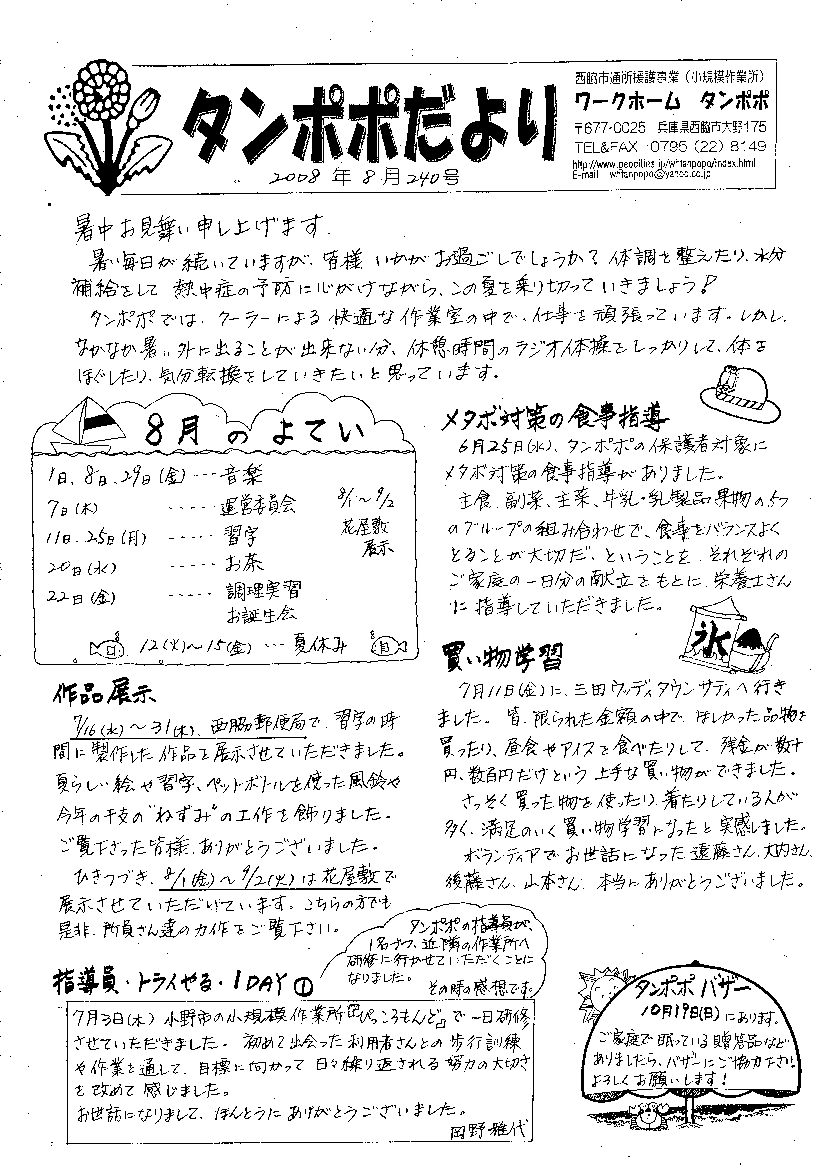 タンポポだより
2008年8月240号
西脇市通所援護事業（小規模作業所）
ワークホーム　タンポポ
〒677-0025　兵庫県西脇市大野175
TEL&FAX　0795（22）8149
暑中お見舞い申し上げます.
暑い毎日が続いていますが、皆様いかがお過ごしでしょうか？体調を整えたり、水分
補給をして熱中症の予防に心がけながら、この夏を乗り切っていきましょう！
タンポポでは、クーラーによる快適な作業室の中で、仕事を頑張っています。しかし、
なかなか暑い外に出ることが出来ない分、休憩時間のラジオ体操をしっかりして、体を
ほぐしたり、気分転換をしていきたいと思っています。
8月のよてい
1日、8日、29日(金)‥‥音楽
7日(木)‥‥‥運営委員会
11日、25日(月)‥‥‥習字
20日(水)‥‥‥お茶
22日(金)‥‥‥調理実習
お誕生会
8/1〜9/2
花屋敷
展示
12(火)〜15(金)‥‥夏休み
作品展示
7/16(水)〜31(木)、西脇郵便局で、習字の時
間に製作した作品を展示させていただきました。
夏らしい絵や習字、ペットボトルを使った風鈴や
今年の干支の"ねずみ"の工作を飾りました。
ご覧下さった皆様、ありがとうございました。
ひきつづき、8/1(金)〜9/2(火)は花屋敷で
展示させていただいています。こちらの方でも
是非、所員さん達の力作をご覧下さい。
メタボ対策の食事指導
6月25日(水)、タンポポの保護者対象に
メタボ対策の食事指導がありました。
主食、副菜、主菜、牛乳・乳製品、果物の5つ
のグループの組み合わせで、食事をバランスよく
とることが大切だ、ということを、それぞれの
ご家庭の一日分の献立をもとに、栄養士さん
に指導していただきました。
氷
買い物学習
7月11日(金)に、三田ウッディタウンサティへ行き
ました。皆、限られた金額の中で、ほしかった品物を
買ったり、昼食やアイスを食べたりして、残金が数十
円、数百円だけという上手な買い物ができました。
さっそく買った物を使ったり、着たりしている人が
多く、満足のいく買い物学習になったと実感しました。
ボランティアでお世話になった遠藤さん、大内さん、
後藤さん、山本さん、本当にありがとうございました。
タンポポの指導員が、
1名ずつ、近隣の作業所へ
研修に行かせていただくことに
なりました。
その時の感想です。
指導員・トライやる・1DAY①
7月3日(木)小野市の小規模作業所『ぴっころもんど』で一日研修
させていただきました。初めて出会った利用者さんとの歩行訓練
や作業を通して、目標に向かって日々繰り返される努力の大切さ
を改めて感じました。
お世話になりまして、ほんとうにありがとうございました。
岡野雅代
タンポポバザー
10月19日(日)にあります。
ご家庭で眠っている贈答品など
ありましたら、バザーにご協力下さい
よろしくお願いします！